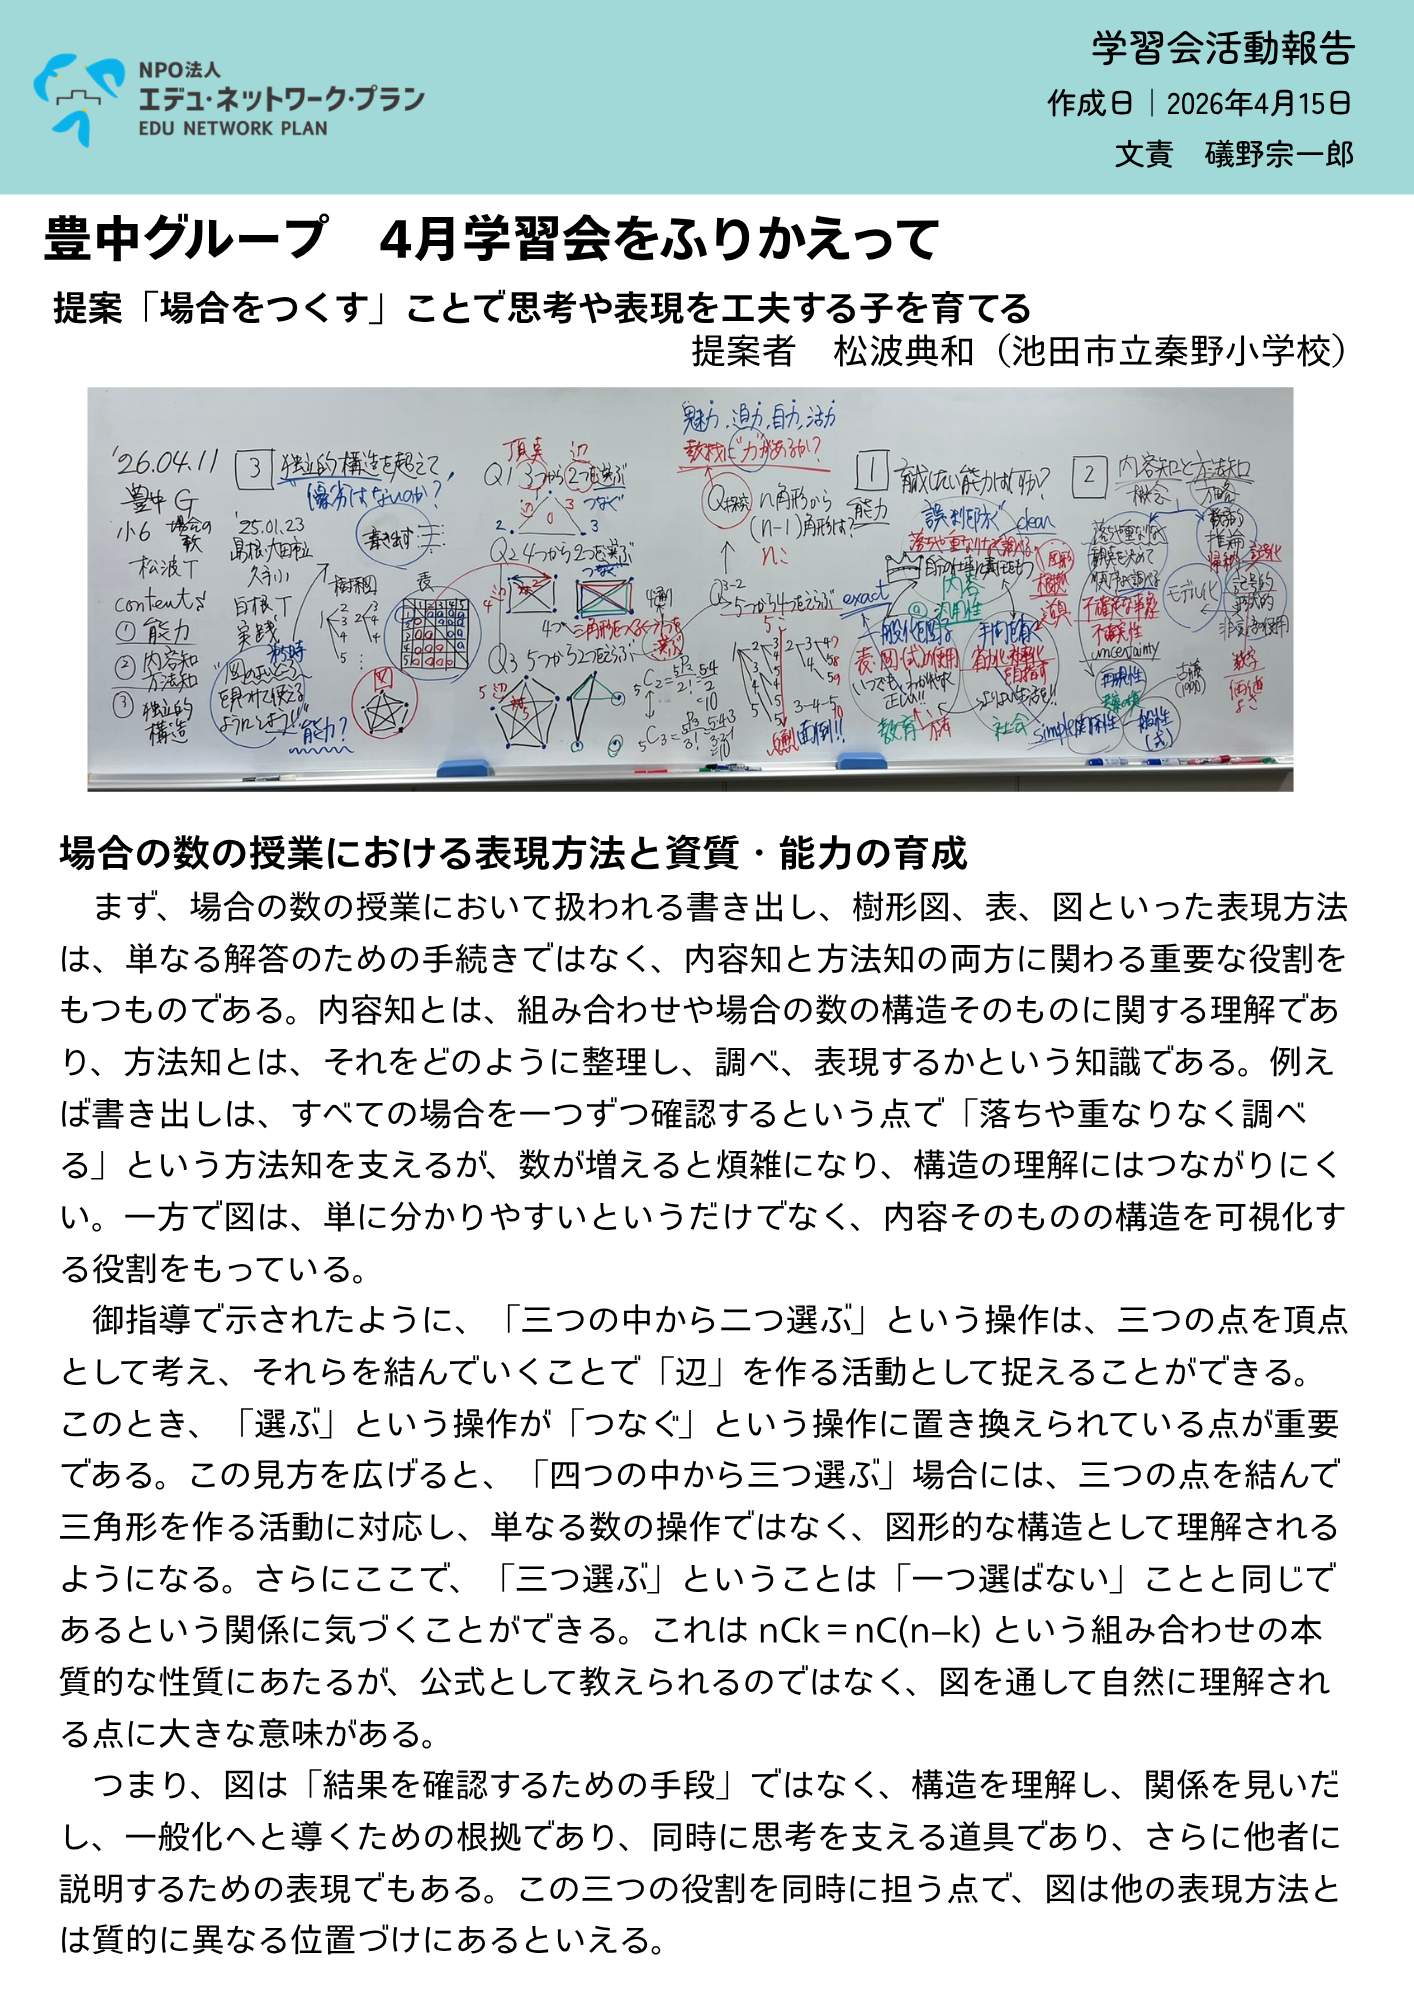 NPO法人
エデュ・ネットワーク・プラン
EDU NETWORK PLAN
学習会活動報告
作成日｜2026年4月15日
文責　礒野宗一郎
豊中グループ　4月学習会をふりかえって
提案「場合をつくす」ことで思考や表現を工夫する子を育てる
提案者　松波典和（池田市立秦野小学校）
'26.04.11
豊中 G
小6 場合の数
松波 T
contents
① 能力
② 内容知 方法知
③ 独立的 構造
3 独立的構造を超えて
優劣はないのか？
'25.01.23
島根大田市
久手小
白根 T
実践
書き出す
樹形図
表
図
能力？
頂点 辺
Q1 3つから2つを選ぶ
つなぐ
Q2 4つから2つを選ぶ
つなぐ
Q3 5つから2つをえらぶ
魅力、迫力、自力、活力
教材に"力"があるか？
n角形から
(n-1)角形は？
Q3-2
5つから4つをえらぶ
面倒!!
1 育成したい能力は何か？
能力
誤りを防ぐ
clean
exact
内容
汎用性
一般化を図る
表・図(式)の使用
手間を省く
教育
社会
2 内容知と方法知
概念
方略
モデル化
不確実性
uncertainty
simple
場合の数の授業における表現方法と資質・能力の育成
　まず、場合の数の授業において扱われる書き出し、樹形図、表、図といった表現方法
は、単なる解答のための手続きではなく、内容知と方法知の両方に関わる重要な役割を
もつものである。内容知とは、組み合わせや場合の数の構造そのものに関する理解であ
り、方法知とは、それをどのように整理し、調べ、表現するかという知識である。例え
ば書き出しは、すべての場合を一つずつ確認するという点で「落ちや重なりなく調べ
る」という方法知を支えるが、数が増えると煩雑になり、構造の理解にはつながりにく
い。一方で図は、単に分かりやすいというだけでなく、内容そのものの構造を可視化す
る役割をもっている。
　御指導で示されたように、「三つの中から二つ選ぶ」という操作は、三つの点を頂点
として考え、それらを結んでいくことで「辺」を作る活動として捉えることができる。
このとき、「選ぶ」という操作が「つなぐ」という操作に置き換えられている点が重要
である。この見方を広げると、「四つの中から三つ選ぶ」場合には、三つの点を結んで
三角形を作る活動に対応し、単なる数の操作ではなく、図形的な構造として理解される
ようになる。さらにここで、「三つ選ぶ」ということは「一つ選ばない」ことと同じで
あるという関係に気づくことができる。これは nCk＝nC(n−k) という組み合わせの本
質的な性質にあたるが、公式として教えられるのではなく、図を通して自然に理解され
る点に大きな意味がある。
　つまり、図は「結果を確認するための手段」ではなく、構造を理解し、関係を見いだ
し、一般化へと導くための根拠であり、同時に思考を支える道具であり、さらに他者に
説明するための表現でもある。この三つの役割を同時に担う点で、図は他の表現方法と
は質的に異なる位置づけにあるといえる。